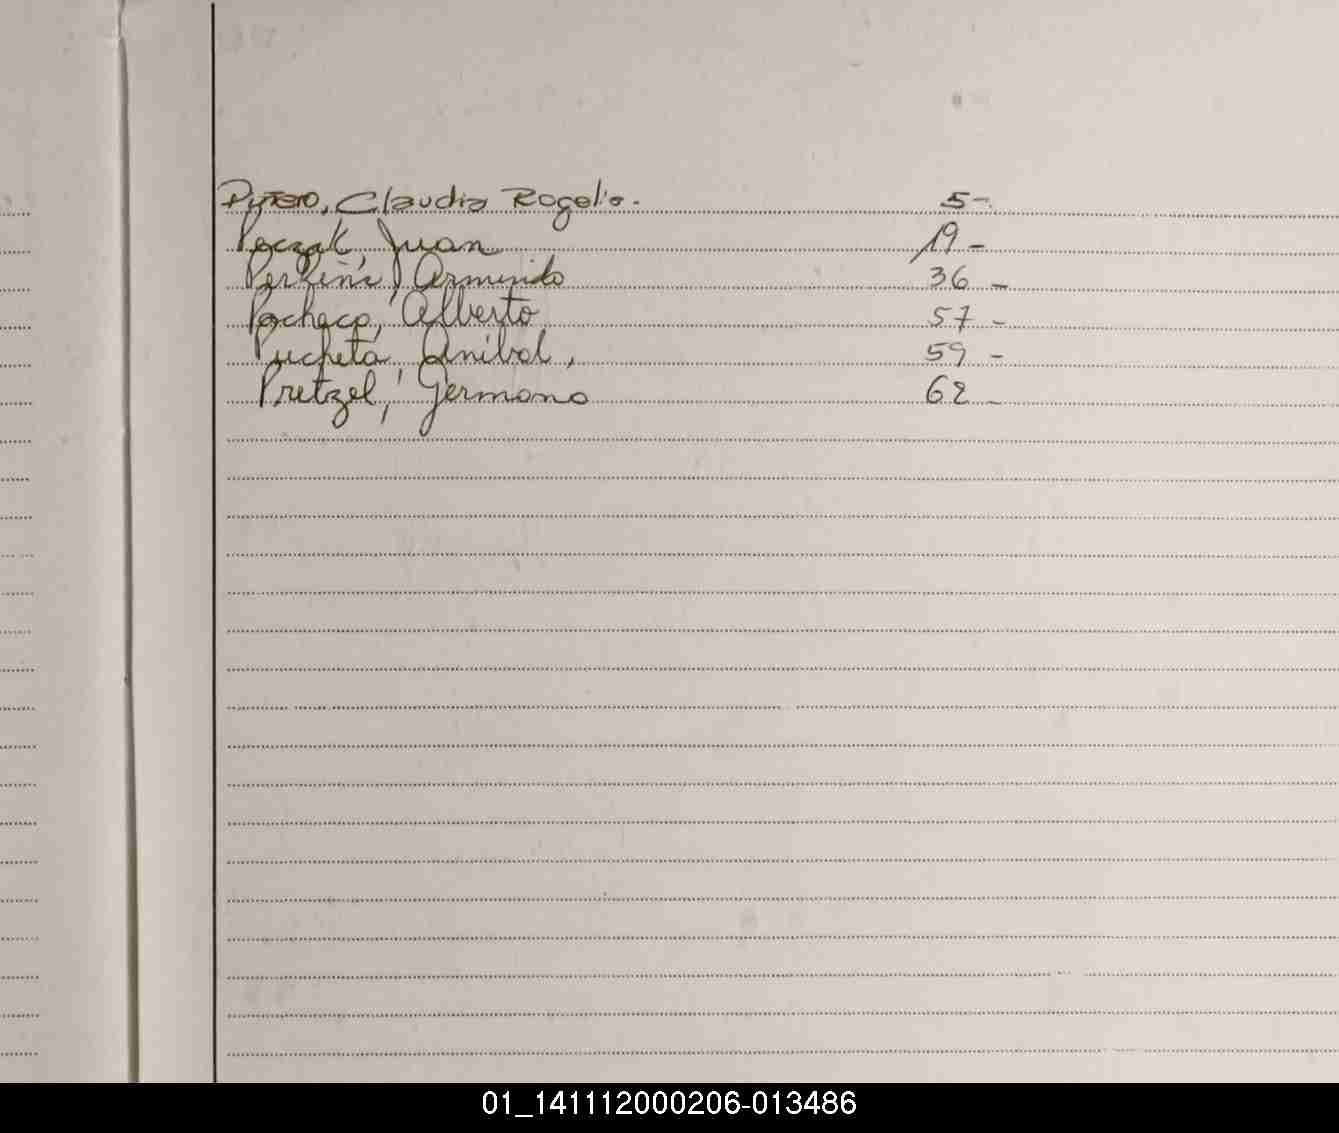 Claudia Rogelio. 5-
Poczak, Juan 19-
Armindo 36-
Pacheco, Alberto 57-
Pucheta, Anibal, 59-
Pretzel, Germano 62-
01_141112000206-013486